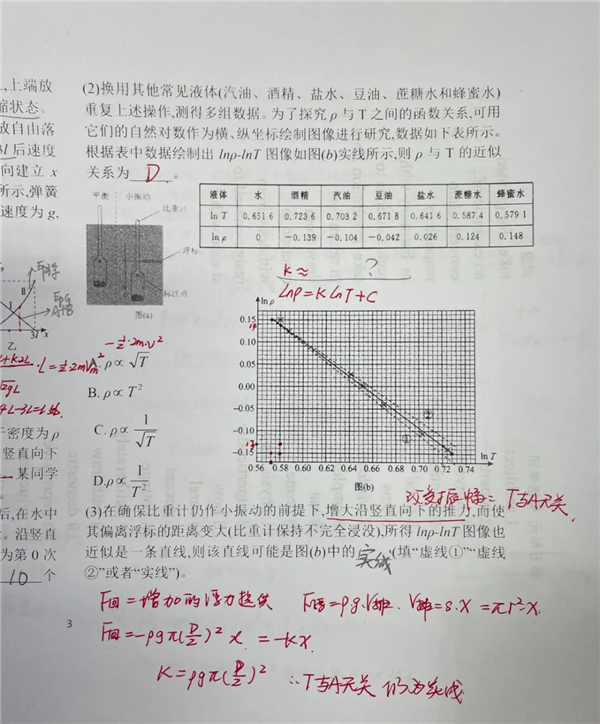 ,上端放
缩状态。
放自由落
3l 后速度
向建立 x
所示,弹簧
速度为 g,
E弹
Epg
II
3l x
乙
=½·2mv²
√gL
于密度为 ρ
竖直向下
某同学
后,在水中
。沿竖直
为第 0 次
10 个
3
(2)换用其他常见液体(汽油、酒精、盐水、豆油、蔗糖水和蜂蜜水)
重复上述操作,测得多组数据。为了探究 ρ 与 T 之间的函数关系,可用
它们的自然对数作为横、纵坐标绘制图像进行研究,数据如下表所示。
根据表中数据绘制出 lnρ-lnT 图像如图(b)实线所示,则 ρ 与 T 的近似
关系为 D 。
平衡 小振动
比重计
浮标
标注点
图(a)
液体 水 酒精 汽油 豆油 盐水 蔗糖水 蜂蜜水
ln T 0.651 6 0.723 6 0.703 2 0.671 8 0.641 6 0.587 4 0.579 1
ln ρ 0 -0.139 -0.104 -0.042 0.026 0.124 0.148
K≈ ?
lnρ=KlnT+C
-½·2m·v²
A.ρ∝√T
B.ρ∝T²
C.ρ∝1/√T
D.ρ∝1/T²
ln ρ
0.15
0.10
0.05
0.00
-0.05
-0.10
-0.15
②
①
ln T
0.56 0.58 0.60 0.62 0.64 0.66 0.68 0.70 0.72 0.74
图(b)
改变振幅= T与A无关
(3)在确保比重计仍作小振动的前提下,增大沿竖直向下的推力,而使
其偏离浮标的距离变大(比重计保持不完全浸没),所得 lnρ-lnT 图像也
近似是一条直线,则该直线可能是图(b)中的 实线 (填“虚线①”“虚线
②”或者“实线”)。
F回=增加的浮力提供 F浮=ρg·V排. V排=S·X=πr²·X.
F回=-ρgπ(D/2)²x =-kx.
K=ρgπ(D/2)² ∴T与A无关 仍为实线